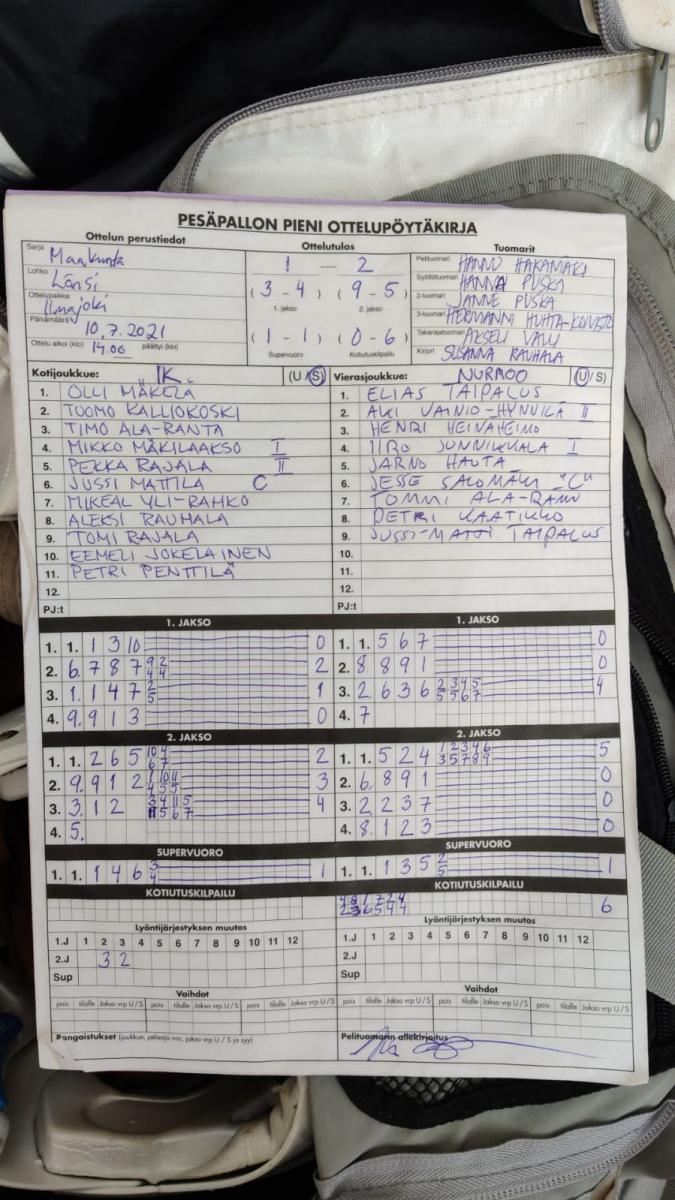 PESÄPALLON PIENI OTTELUPÖYTÄKIRJA
Ottelun perustiedot
Ottelutulos
Tuomarit
Sarja Maakunta
1 - 2
Pelituomari HANNU HAKAMÄKI
Lohko Länsi
(3-4) (9-5)
Syöttötuomari HANNA PUSKA
Ottelupaikka Ilmajoki
1. jakso 2. jakso
2-tuomari JANNE PUSKA
Päivämäärä 10.7.2021
(1-1) (0-6)
3-tuomari HERMANNI HUHTA-KOIVISTO
Ottelu alkoi (klo) 14.00 päättyi (klo)
Supervuoro Kotiutuskilpailu
Takarajatuomari AKSELI
Kirjuri SUSANNA RAUHALA
Kotijoukkue: IK. (U/S)
Vierasjoukkue: NURMOO (U/S)
1. OLLI MÄKELÄ
1. ELIAS TAIPALUS
2. TUOMO KALLIOKOSKI
2. AKI VAINIO-HYNNILÄ II
3. TIMO ALA-RANTA
3. HENRI HEINÄHEIMO
4. MIKKO MÄKILAAKSO I
4. IIRO JUNNIKKALA I
5. PEKKA RAJALA II
5. JARNO HAUTA
6. JUSSI MATTILA C
6. JESSE SALOMÄKI "C"
7. MIKEAL YLI-RAHKO
7. TOMMI ALA-RAMI
8. ALEKSI RAUHALA
8. PETRI KAATIKKO
9. TOMI RAJALA
9. JUSSI-MATTI TAIPALUS
10. EEMELI JOKELAINEN
10.
11. PETRI PENTTILÄ
11.
12.
12.
PJ:t
PJ:t
1. JAKSO
1. JAKSO
1. 1. 1 3 10 0
1. 1. 5 6 7 0
2. 6. 7 8 7 9 2 2
4 4
2. 8 8 9 1 0
3. 1. 1 4 7 2 1
5
3. 2 6 3 6 2 3 4 5 4
5 5 6 7
4. 9. 9 1 3 0
4. 7
2. JAKSO
2. JAKSO
1. 1. 2 6 5 10 4 2
6 7
1. 1. 5 2 4 1 2 3 4 6 5
3 5 7 8 9
2. 9. 9 1 2 1 10 11 3
4 5 5
2. 6. 8 9 1 0
3. 3. 1 2 3 4 11 5 4
11 5 6 7
3. 2 2 3 7 0
4. 5.
4. 8. 1 2 3 0
SUPERVUORO
SUPERVUORO
1. 1. 1 4 6 3 1
4
1. 1. 1 3 5 2 1
5
KOTIUTUSKILPAILU
KOTIUTUSKILPAILU
6
Lyöntijärjestyksen muutos
Lyöntijärjestyksen muutos
1.J 1 2 3 4 5 6 7 8 9 10 11 12
1.J 1 2 3 4 5 6 7 8 9 10 11 12
2.J 3 2
2.J
Sup
Sup
Vaihdot
Vaihdot
pois tilalle Jakso vrp U/S pois tilalle Jakso vrp U/S pois tilalle Jakso vrp U/S
pois tilalle Jakso vrp U/S pois tilalle Jakso vrp U/S pois tilalle Jakso vrp U/S
Pangaistukset (joukkue, pelaaja nro, jakso vrp U / S ja syy)
Pelituomarin allekirjoitus